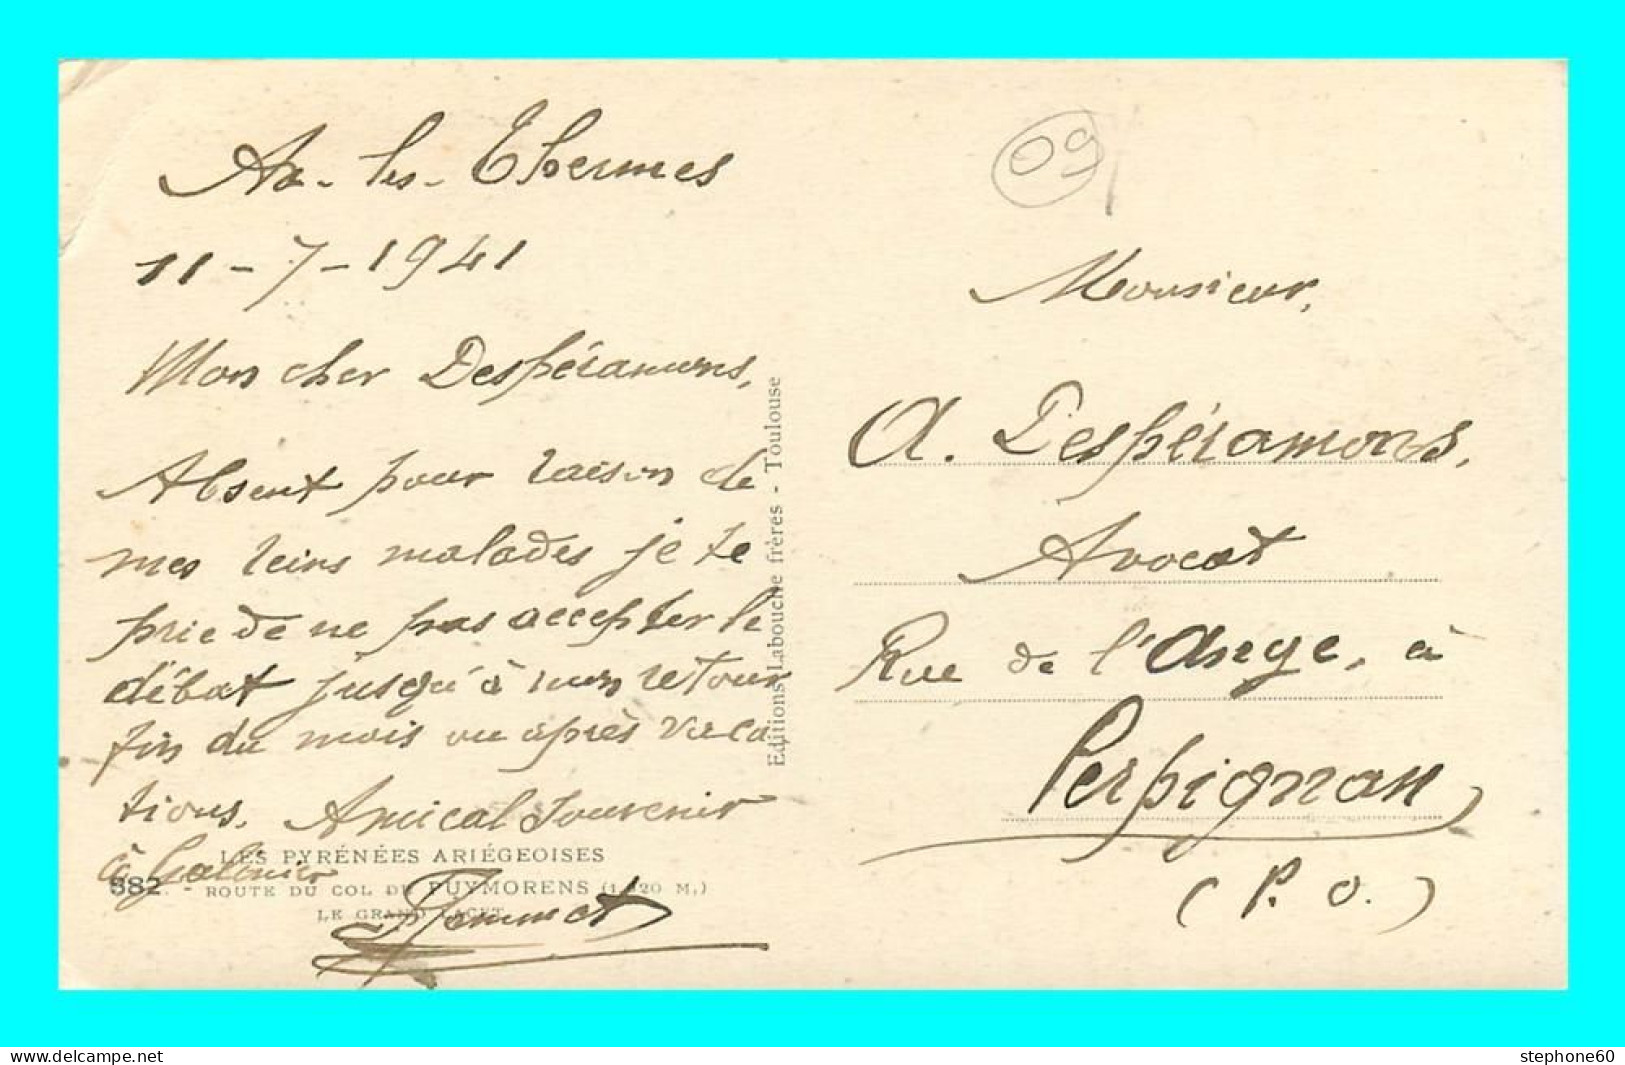 Ax-les-Thermes
11-7-1941
Mon cher Despéramons,
Absent pour raison de
mes reins malades je te
prie de ne pas accepter le
débat jusqu'à mon retour
fin du mois ou après vaca
tions. Amical souvenir
à
LES PYRÉNÉES ARIÉGEOISES
882. - ROUTE DU COL DE PUYMORENS (1.920 M.)
LE GRAND LACET
Editions Labouche frères - Toulouse
09
Monsieur,
A. Despéramons,
Avocat
Rue de l'Ange, à
Perpignan
(P. O.)
www.delcampe.net
stephone60